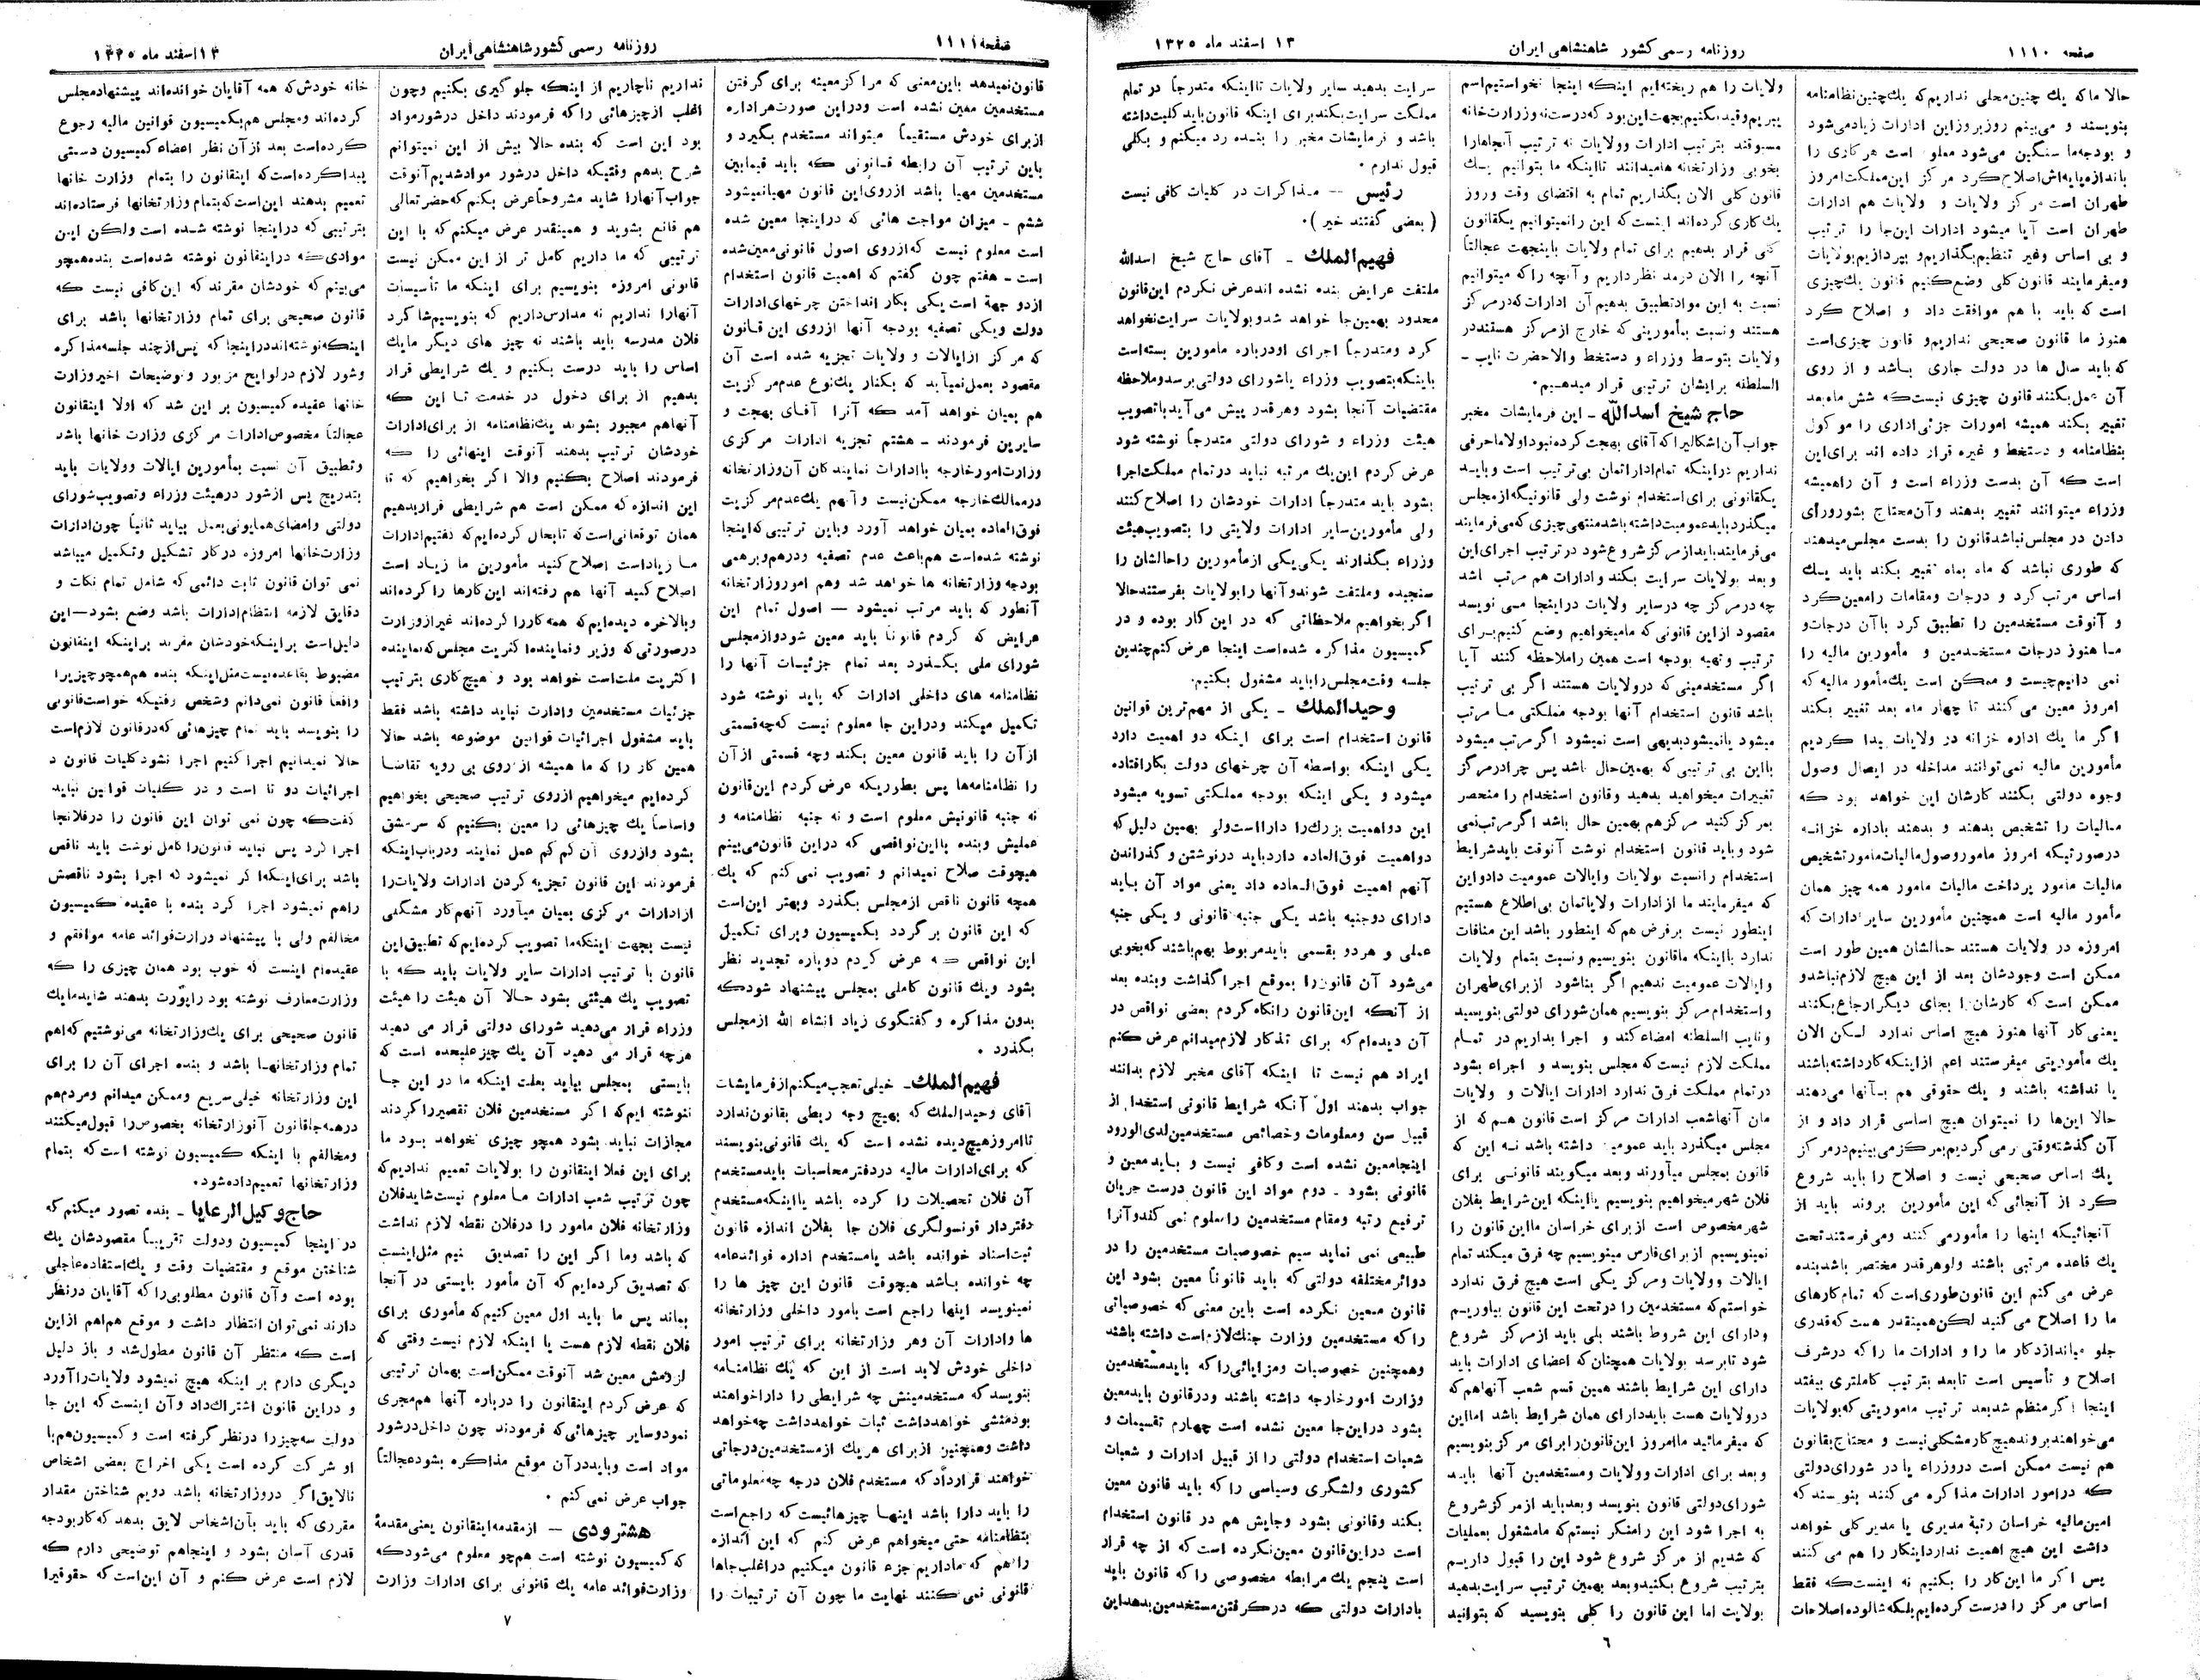 صفحه ۱۱۱۰
روزنامه رسمی کشور شاهنشاهی ایران
۱۳ اسفند ماه ۱۳۲۵
حالا ما که یك چنین محلی نداریم که یك چنین نظامنامه
بنویسند و می‌بینم روز بروز این ادارات زیاد می‌شود
و بودجه‌ما سنگین می‌شود معلوم است هر کاری را
باندازه پایه‌اش اصلاح کرد مرکز این مملکت امروز
طهران است مرکز ولایات و ولایات هم ادارات
طهران است آیا میشود ادارات این‌جا را ترتیب
و بی اساس وغیر تنظیم بگذاریم و بپردازیم بولایات
ومیفرمایند قانون کلی وضع کنیم قانون یك چیزی
است که باید با هم موافقت داد و اصلاح کرد
هنوز ما قانون صحیحی نداریم و قانون چیزی‌است
که باید سال ها در دولت جاری باشد و از روی
آن عمل بکنند قانون چیزی نیست که شش ماه بعد
تغییر بکند همیشه امورات جزئی اداری را موکول
بنظامنامه و دستخط و غیره قرار داده اند برای این
است که آن بدست وزراء است و آن راهمیشه
وزراء میتوانند تغییر بدهند وآن محتاج بشورورأی
دادن در مجلس نباشد قانون را بدست مجلس میدهند
که طوری نباشد که ماه بماه تغییر بکند باید یك
اساس مرتب کرد و درجات ومقامات رامعین کرد
و آنوقت مستخدمین را تطبیق کرد باآن درجات و
ما هنوز درجات مستخدمین و مأمورین مالیه را
نمی دانیم چیست و ممکن است یك مأمور مالیه که
امروز معین می کنند تا چهار ماه بعد تغییر بکند
اگر ما یك اداره خزانه در ولایات پیدا کردیم
مأمورین مالیه نمی‌توانند مداخله در ایصال وصول
وجوه دولتی بکنند کارشان این خواهد بود که
مالیات را تشخیص بدهند و بدهند باداره خزانه
درصورتیکه امروز مامور وصول مالیات مامور تشخیص
مالیات مامور پرداخت مالیات مامور همه چیز همان
مأمور مالیه است همچنین مأمورین سایر ادارات که
امروزه در ولایات هستند حالشان همین طور است
ممکن است وجودشان بعد از این هیچ لازم نباشد و
ممکن است که کارشان را بجای دیگر ارجاع بکنند
یعنی کار آنها هنوز هیچ اساس ندارد لکن الان
یك مأموریتی میفرستند اعم ازاینکه کار داشته باشند
یا نداشته باشند و یك حقوقی هم بآنها می‌دهند
حالا این‌ها را نمیتوان هیچ اساسی قرار داد و از
آن گذشته وقتی بر می‌گردیم بمرکز می‌بینیم در مرکز
یك اساس صحیحی نیست و اصلاح را باید شروع
کرد از آنجائی که این مأمورین بروند باید از
آنجائیکه اینها را مأمور می کنند ومی فرستند تحت
یك قاعده مرتبی باشند ولو هرقدر مختصر باشد بنده
عرض می کنم این قانون طوری است که تمام کارهای
ما را اصلاح می کنید لکن همینقدر هست که قدری
جلو میاندازد کار ما را و ادارات ما را که در شرف
اصلاح و تأسیس است تا بعد بترتیب کاملتری بیفتد
اینجا اگر منظم شد بعد ترتیب ماموریتی که بولایات
می‌خواهند بروند هیچ کار مشکلی نیست و محتاج بقانون
هم نیست ممکن است در وزراء یا در شورای دولتی
که در امور ادارات مذاکره می کنند بنویسند که
امین مالیه خراسان رتبهٔ مدیری یا مدیر کلی خواهد
داشت این هیچ اهمیت ندارد اینکار را هم می کنند
پس اگر ما این کار را بکنیم نه اینست که فقط
اساس مرکز را درست کرده‌ایم بلکه شالوده اصلاحات
ولایات را هم ریخته‌ایم اینکه اینجا نخواستیم اسم
ببریم وقید بکنیم بجهت این بود که درست نه وزارت خانه
مسبوقند بترتیب ادارات وولایات نه ترتیب آنجاهارا
بخوبی وزارتخانه ها میدانند تا اینکه ما بتوانیم یك
قانون کلی الان بگذاریم تمام به اقتضای وقت وروز
یك کاری کرده‌اند اینست که این را نمیتوانیم یك قانون
کلی قرار بدهیم برای تمام ولایات باینجهت عجالتاً
آنچه را الان در مد نظر داریم و آنچه را که میتوانیم
نسبت به این مواد تطبیق بدهیم آن ادارات که در مرکز
هستند ونسبت بمأمورینی که خارج از مرکز هستند در
ولایات بتوسط وزراء و دستخط والاحضرت نایب ـ
السلطنه برایشان ترتیبی قرار میدهیم.
حاج شیخ اسدالله ـ این فرمایشات مخبر
جواب آن اشکالیرا که آقای بهجت کرده نبود اولا ما حرفی
نداریم در اینکه تمام ادارتمان بی ترتیب است و باید
یك قانونی برای استخدام نوشت ولی قانونیکه از مجلس
میگذرد باید عمومیت داشته باشد منتهی چیزی که می فرمایند
می فرمایند باید از مرکز شروع شود در ترتیب اجرای این
و بعد بولایات سرایت بکند و ادارات هم مرتب اشد
چه در مرکز چه در سایر ولایات در اینجا می نویسد
مقصود از این قانونی که ما میخواهیم وضع کنیم برای
ترتیب وتهیه بودجه است همین را ملاحظه کنند آیا
اگر مستخدمینی که در ولایات هستند اگر بی ترتیب
باشد قانون استخدام آنها بودجه مملکتی ما مرتب
میشود یا نمیشود بدیهی است نمیشود اگر مرتب میشود
با این بی ترتیبی که بهمین حال باشد پس چرا در مرکز
تغییرات میخواهید بدهید وقانون استخدام را منحصر
بمرکز کنید مرکز هم بهمین حال باشد اگر مرتب نمی
شود و باید قانون استخدام نوشت آنوقت باید شرایط
استخدام را نسبت بولایات وایالات عمومیت داد و این
که میفرمایند ما از ادارات ولایاتمان بی اطلاع هستیم
اینطور نیست بر فرض هم که اینطور باشد این منافات
ندارد با اینکه ما قانون بنویسیم و نسبت بتمام ولایات
وایالات عمومیت ندهیم اگر بناشود از برای طهران
واستخدام مرکز بنویسیم همان شورای دولتی بنویسد
ونایب السلطنه امضاء کند و اجرا بداریم در تمام
مملکت لازم نیست که مجلس بنویسد و اجراء بشود
در تمام مملکت فرق ندارد ادارات ایالات و ولایات
مان آنها شعب ادارات مرکز است قانون هم که از
مجلس میگذرد باید عمومیت داشته باشد نه این که
قانون بمجلس میآورند وبعد میگویند قانونی برای
فلان شهر میخواهیم بنویسیم یا اینکه این شرایط بفلان
شهر مخصوص است از برای خراسان ما این قانون را
نمینویسیم از برای فارس مینویسیم چه فرق میکند تمام
ایالات وولایات ومرکز یکی است هیچ فرق ندارد
خواستم که مستخدمین را در تحت این قانون بیاوریم
ودارای این شروط باشند بلی باید از مرکز شروع
شود تا برسد بولایات همچنان که اعضای ادارات باید
دارای این شرایط باشند همین قسم شعب آنها هم که
در ولایات هست باید دارای همان شرایط باشد اما این
که میفرمائید ما امروز این قانون را برای مرکز بنویسیم
وبعد برای ادارات وولایات ومستخدمین آنها باید
شورای دولتی قانون بنویسد وبعد باید از مرکز شروع
به اجرا شود این را منکر نیستم که ما مشغول بعملیات
که شدیم از مرکز شروع شود این را قبول داریم
بترتیب شروع بکنید وبعد بهمین ترتیب سرایت بدهید
بولایت اما این قانون را کلی بنویسید که بتوانید
سرایت بدهید سایر ولایات تا اینکه متدرجاً در تمام
مملکت سرایت بکند برای اینکه قانون باید کلیت داشته
باشد و فرمایشات مخبر را بنده رد میکنم و بکلی
قبول ندارم.
رئیس -- مذاکرات در کلیات کافی نیست
( بعضی گفتند خیر ).
فهیم‌الملك ـ آقای حاج شیخ اسدالله
ملتفت عرایض بنده نشده اند عرض نکردم این قانون
محدود بهمین جا خواهد شد و بولایات سرایت نخواهد
کرد ومتدرجاً اجرای او درباره مامورین بسته است
باینکه بتصویب وزراء یا شورای دولتی برسد و ملاحظه
مقتضیات آنجا بشود و هرقدر پیش می آید با تصویب
هیئت وزراء و شورای دولتی متدرجاً نوشته شود
عرض کردم این یك مرتبه نباید در تمام مملکت اجرا
بشود باید متدرجاً ادارات خودشان را اصلاح کنند
ولی مأمورین سایر ادارات ولایتی را بتصویب هیئت
وزراء بگذارند یکی یکی از مأمورین را حالشان را
سنجیده وملتفت شوند و آنها را بولایات بفرستند حالا
اگر بخواهیم ملاحظاتی که در این کار بوده و در
کمیسیون مذاکره شده است اینجا عرض کنم چندین
جلسه وقت مجلس را باید مشغول بکنیم.
وحیدالملك ـ یکی از مهم‌ترین قوانین
قانون استخدام است برای اینکه دو اهمیت دارد
یکی اینکه بواسطه آن چرخهای دولت بکار افتاده
میشود و یکی اینکه بودجه مملکتی تسویه میشود
این دو اهمیت بزرك را دارا است ولی بهمین دلیل که
دو اهمیت فوق‌العاده دارد باید در نوشتن و گذراندن
آنهم اهمیت فوق‌العاده داد یعنی مواد آن باید
دارای دو جنبه باشد یکی جنبه قانونی و یکی جنبه
عملی و هردو بقسمی باید مربوط بهم باشند که بخوبی
می‌شود آن قانون را بموقع اجرا گذاشت و بنده بعد
از آنکه این قانون را نگاه کردم بعضی نواقص در
آن دیده‌ام که برای تذکار لازم میدانم عرض کنم
ایراد هم نیست تا اینکه آقای مخبر لازم بدانند
جواب بدهند اول آنکه شرایط قانونی استخدام از
قبیل سن ومعلومات وخصائص مستخدمین لدی‌الورود
اینجا معین نشده است وکافی نیست و باید معین و
قانونی بشود ـ دوم مواد این قانون درست جریان
ترفیع رتبه ومقام مستخدمین را معلوم نمی کند و آنرا
طبیعی نمی نماید سیم خصوصیات مستخدمین را در
دوائر مختلفه دولتی که باید قانوناً معین بشود این
قانون معین نکرده است باین معنی که خصوصیاتی
را که مستخدمین وزارت جنك لازم است داشته باشند
وهمچنین خصوصیات ومزایائی را که باید مستخدمین
وزارت امور خارجه داشته باشند ودر قانون باید معین
بشود در این جا معین نشده است چهارم تقسیمات و
شعبات استخدام دولتی را از قبیل ادارات و شعبات
کشوری ولشگری وسیاسی را که باید قانون معین
بکند وقانونی بشود وجایش هم در قانون استخدام
است در این قانون معین نکرده است که از چه قرار
است پنجم یك مرابطه مخصوصی را که قانون باید
بادارات دولتی که در گرفتن مستخدمین بدهد این
٦
صفحه ۱۱۱۱
روزنامه رسمی کشور شاهنشاهی ایران
۱۳ اسفند ماه ۱۳۲۵
قانون نمیدهد باین معنی که مراکز معینه برای گرفتن
مستخدمین معین نشده است ودر این صورت هر اداره
از برای خودش مستقیماً میتواند مستخدم بگیرد و
باین ترتیب آن رابطه قانونی که باید فیمابین
مستخدمین مهیا باشد از روی این قانون مهیا نمیشود
ششم ـ میزان مواجب هائی که در اینجا معین شده
است معلوم نیست که از روی اصول قانونی معین شده
است ـ هفتم چون گفتم که اهمیت قانون استخدام
از دو جهة است یکی بکار انداختن چرخهای ادارات
دولت ویکی تصفیه بودجه آنها از روی این قانون
که مرکز از ایالات و ولایات تجزیه شده است آن
مقصود بعمل نمیآید که بکنار یك نوع عدم مرکزیت
هم بمیان خواهد آمد که آنرا آقای بهجت و
سایرین فرمودند ـ هشتم تجزیه ادارات مرکزی
وزارت امور خارجه با ادارات نمایندگان آن وزارتخانه
در ممالك خارجه ممکن نیست و آنهم یك عدم مرکزیت
فوق‌العاده بمیان خواهد آورد وباین ترتیبی که اینجا
نوشته شده است هم باعث عدم تصفیه ودرهم و برهمی
بودجه وزارتخانه ها خواهد شد وهم امور وزارتخانه
آنطور که باید مرتب نمیشود — اصول تمام این
عرایض که کردم قانوناً باید معین شود و از مجلس
شورای ملی بگذرد بعد تمام جزئیات آنها را
نظامنامه های داخلی ادارات که باید نوشته شود
تکمیل میکند ودر این جا معلوم نیست که چه قسمتی
از آن را باید قانون معین بکند وچه قسمتی از آن
را نظامنامه‌ها پس بطوریکه عرض کردم این قانون
نه جنبه قانونیش معلوم است و نه جنبه نظامنامه و
عملیش وبنده با این نواقصی که در این قانون می‌بینم
هیچوقت صلاح نمیدانم و تصویب نمی کنم که یك
همچه قانون ناقص از مجلس بگذرد وبهتر این است
که این قانون بر گردد بکمیسیون وبرای تکمیل
این نواقص که عرض کردم دوباره تجدید نظر
بشود ویك قانون کاملی بمجلس پیشنهاد شود که
بدون مذاکره و گفتگوی زیاد انشاء الله از مجلس
بگذرد .
فهیم‌الملك ـ خیلی تعجب میکنم از فرمایشات
آقای وحیدالملك که بهیچ وجه ربطی بقانون ندارد
تا امروز هیچ دیده نشده است که یك قانونی بنویسند
که برای ادارات مالیه در دفتر محاسبات باید مستخدم
آن فلان تحصیلات را کرده باشد یا اینکه مستخدم
دفتردار قونسولگری فلان جا بفلان اندازه قانون
ثبت اسناد خوانده باشد یا مستخدم اداره فوائد عامه
چه خوانده باشد هیچوقت قانون این چیز ها را
نمینویسد اینها راجع است بامور داخلی وزارتخانه
ها و ادارات آن وهر وزارتخانه برای ترتیب امور
داخلی خودش لابد است از این که یك نظامنامه
بنویسد که مستخدمینش چه شرایطی را دارا خواهند
بود منشی خواهد داشت ثبات خواهد داشت چه خواهد
داشت وهمچنین از برای هر یك از مستخدمین درجاتی
خواهند قرار داد که مستخدم فلان درجه چه معلوماتی
را باید دارا باشد اینها چیزهائیست که راجع است
بنظامنامه حتی میخواهم عرض کنم که این اندازه
را هم که ما داریم جزء قانون میکنیم در اغلب جاها
قانونی نمی کنند نهایت ما چون آن ترتیبات را
نداریم ناچاریم از اینکه جلو گیری بکنیم وچون
اغلب از چیزهائی را که فرمودند داخل در شور مواد
بود این است که بنده حالا بیش از این نمیتوانم
شرح بدهم وقتیکه داخل در شور مواد شدیم آنوقت
جواب آنهارا شاید مشروحاً عرض بکنم که حضرتعالی
هم قانع بشوید و همینقدر عرض میکنم که با این
ترتیبی که ما داریم کامل تر از این ممکن نیست
قانونی امروزه بنویسیم برای اینکه ما تأسیسات
آنهارا نداریم نه مدارس داریم که بنویسیم شاگرد
فلان مدرسه باید باشند نه چیز های دیگر ما یك
اساس را باید درست بکنیم و یك شرایطی قرار
بدهیم از برای دخول در خدمت تا این که
آنها هم مجبور بشوند یك نظامنامه از برای ادارات
خودشان ترتیب بدهند آنوقت اینهائی را که
فرمودند اصلاح بکنیم والا اگر بخواهیم که تا
این اندازه که ممکن است هم شرایطی قرار بدهیم
همان توقعاتی است که تا بحال کرده‌ایم که گفتیم ادارات
ما زیاد است اصلاح کنید مأمورین ما زیاد است
اصلاح کنید آنها هم رفته‌اند این کارها را کرده‌اند
وبالاخره دیده‌ایم که همه کار را کرده‌اند غیر از وزارت
در صورتی که وزیر و نماینده اکثریت مجلس که نماینده
اکثریت ملت است خواهد بود و هیچ کاری بترتیب
جزئیات مستخدمین وادارت نباید داشته باشد فقط
باید مشغول اجرائیات قوانین موضوعه باشد حالا
همین کار را که ما همیشه از روی بی رویه تقاضا
کرده‌ایم میخواهیم از روی ترتیب صحیحی بخواهیم
واساساً یك چیزهائی را معین بکنیم که سرمشق
بشود و از روی آن کم کم عمل نمایند ودر باب اینکه
فرمودند این قانون تجزیه کردن ادارات ولایات را
از ادارات مرکزی بمیان میآورد آنهم کار مشکلی
نیست بجهت اینکه ما تصویب کرده‌ایم که تطبیق این
قانون با ترتیب ادارات سایر ولایات باید که با
تصویب یك هیئتی بشود حالا آن هیئت را هیئت
وزراء قرار می‌دهید شورای دولتی قرار می دهید
هرچه قرار می دهید آن یك چیز علیحده است که
بایستی بمجلس بیاید بعلت اینکه ما در این جا
ننوشته ایم که اگر مستخدمین فلان تقصیر را کردند
مجازات نباید بشود همچو چیزی نخواهد بود ما
برای این فعلا اینقانون را بولایات تعمیم ندادیم که
چون ترتیب شعب ادارات ما معلوم نیست شاید فلان
وزارتخانه فلان مامور را در فلان نقطه لازم نداشت
که باشد وما اگر این را تصدیق کنیم مثل اینست
که تصدیق کرده‌ایم که آن مأمور بایستی در آنجا
بماند پس ما باید اول معین کنیم که مأموری برای
فلان نقطه لازم هست یا اینکه لازم نیست وقتی که
لزومش معین شد آنوقت ممکن است بهمان ترتیبی
که عرض کردم اینقانون را درباره آنها هم مجری
نمود وسایر چیزهائی که فرمودند چون داخل در شور
مواد است وباید در آن موقع مذاکره بشود عجالتاً
جواب عرض نمی کنم .
هشترودی — از مقدمه اینقانون یعنی مقدمهٔ
که کمیسیون نوشته است همچو معلوم می‌شود که
وزارت فوائد عامه یك قانونی برای ادارات وزارت
خانه خودش که همه آقایان خوانده‌اند پیشنهاد مجلس
کرده‌اند ومجلس هم بکمیسیون قوانین مالیه رجوع
کرده است بعد از آن نظر اعضاء کمیسیون دستی
پیدا کرده است که اینقانون را بتمام وزارت خانها
تعمیم بدهند این است که بتمام وزارتخانها فرستاده‌اند
بترتیبی که در اینجا نوشته شده است ولکن این
موادی که در اینقانون نوشته شده است بنده همچو
می‌بینم که خودشان مقرند که این کافی نیست که
قانون صحیحی برای تمام وزارتخانها باشد برای
اینکه نوشته‌اند در اینجا که پس از چند جلسه مذاکره
وشور لازم در لوایح مزبور وتوضیحات اخیر وزارت
خانها عقیده کمیسیون بر این شد که اولا اینقانون
عجالتاً مخصوص ادارات مرکزی وزارت خانها باشد
وتطبیق آن نسبت بمأمورین ایالات وولایات باید
بتدریج پس از شور در هیئت وزراء وتصویب شورای
دولتی و امضای همایونی بعمل بیاید ثانیاً چون ادارات
وزارت خانها امروزه در کار تشکیل وتکمیل میباشد
نمی توان قانون ثابت دائمی که شامل تمام نکات و
دقایق لازمه انتظام ادارات باشد وضع بشود—این
دلیل است بر اینکه خودشان مقرند بر اینکه اینقانون
مضبوط بقاعده نیست مثل اینکه بنده همچو چیزیرا
واقعاً قانون نمی‌دانم وشخص وقتیکه خواست قانونی
را بنویسد باید تمام چیزهائی که در قانون لازم است
حالا نمیدانیم اجرا کنیم اجرا نشود کلیات قانون د
اجرائیات دو تا است و در کلیات قوانین نباید
گفت که چون نمی توان این قانون را در فلانجا
اجرا کرد پس نباید قانون را کامل نوشت باید ناقص
باشد برای اینکه اگر نمیشود که اجرا بشود ناقصش
راهم نمیشود اجرا کرد بنده با عقیده کمیسیون
مخالفم ولی با پیشنهاد وزارت فوائد عامه موافقم و
عقیده‌ام اینست که خوب بود همان چیزی را که
وزارت معارف نوشته بود راپورت بدهند شاید ما یك
قانون صحیحی برای یك وزارتخانه می‌نوشتیم که اهم
تمام وزارتخانها باشد و بنده اجرای آن را برای
این وزارتخانه خیلی سریع وممکن میدانم ومردم هم
در همه جا قانون آنوزارتخانه بخصوص را قبول میکنند
ومخالفم با اینکه کمیسیون نوشته است که بتمام
وزارتخانها تعمیم داده شود.
حاج وکیل الرعایا ـ بنده تصور میکنم که
در اینجا کمیسیون ودولت تقریباً مقصودشان یك
شناختن موقع و مقتضیات وقت و یك استفاده عاجلی
بوده است وآن قانون مطلوبی را که آقایان در نظر
دارند نمی‌توان انتظار داشت و موقع هم اهم از این
است که منتظر آن قانون مطول شد و باز دلیل
دیگری دارم بر اینکه هیچ نمیشود ولایات را آورد
و در این قانون اشتراك داد وآن اینست که این جا
دولت سه چیز را در نظر گرفته است و کمیسیون هم با
او شرکت کرده است یکی اخراج بعضی اشخاص
نالایق اگر در وزارتخانه باشد دویم شناختن مقدار
مقرری که باید بآن اشخاص لایق بدهد که کار بودجه
قدری آسان بشود و اینجا هم توضیحی دارم که
لازم است عرض کنم و آن این است که حقوقیرا
۷